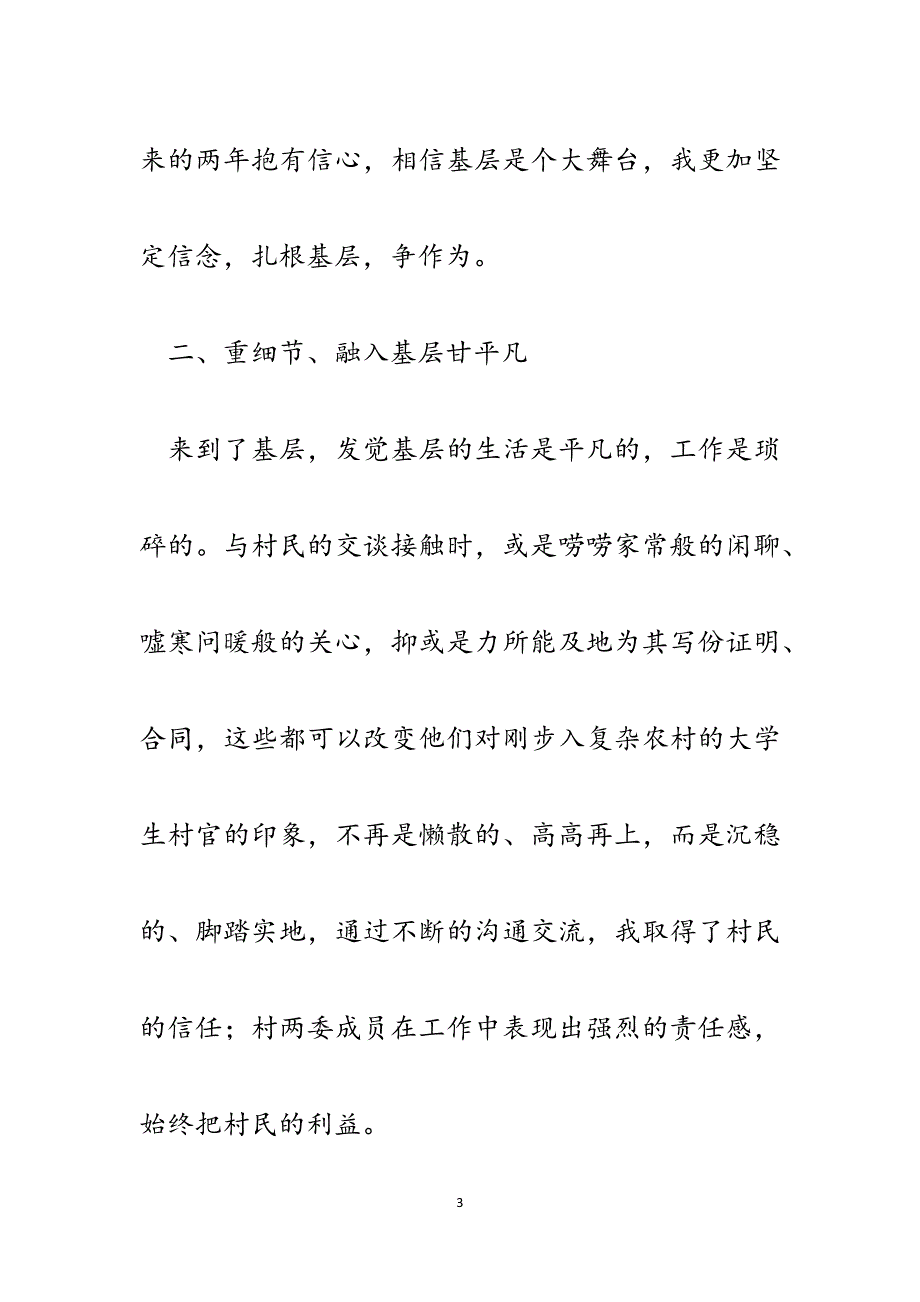 来的两年抱有信心，相信基层是个大舞台，我更加坚
定信念，扎根基层，争作为。
二、重细节、融入基层甘平凡
来到了基层，发觉基层的生活是平凡的，工作是琐
碎的。与村民的交谈接触时，或是唠唠家常般的闲聊、
嘘寒问暖般的关心，抑或是力所能及地为其写份证明、
合同，这些都可以改变他们对刚步入复杂农村的大学
生村官的印象，不再是懒散的、高高再上，而是沉稳
的、脚踏实地，通过不断的沟通交流，我取得了村民
的信任；村两委成员在工作中表现出强烈的责任感，
始终把村民的利益。
3